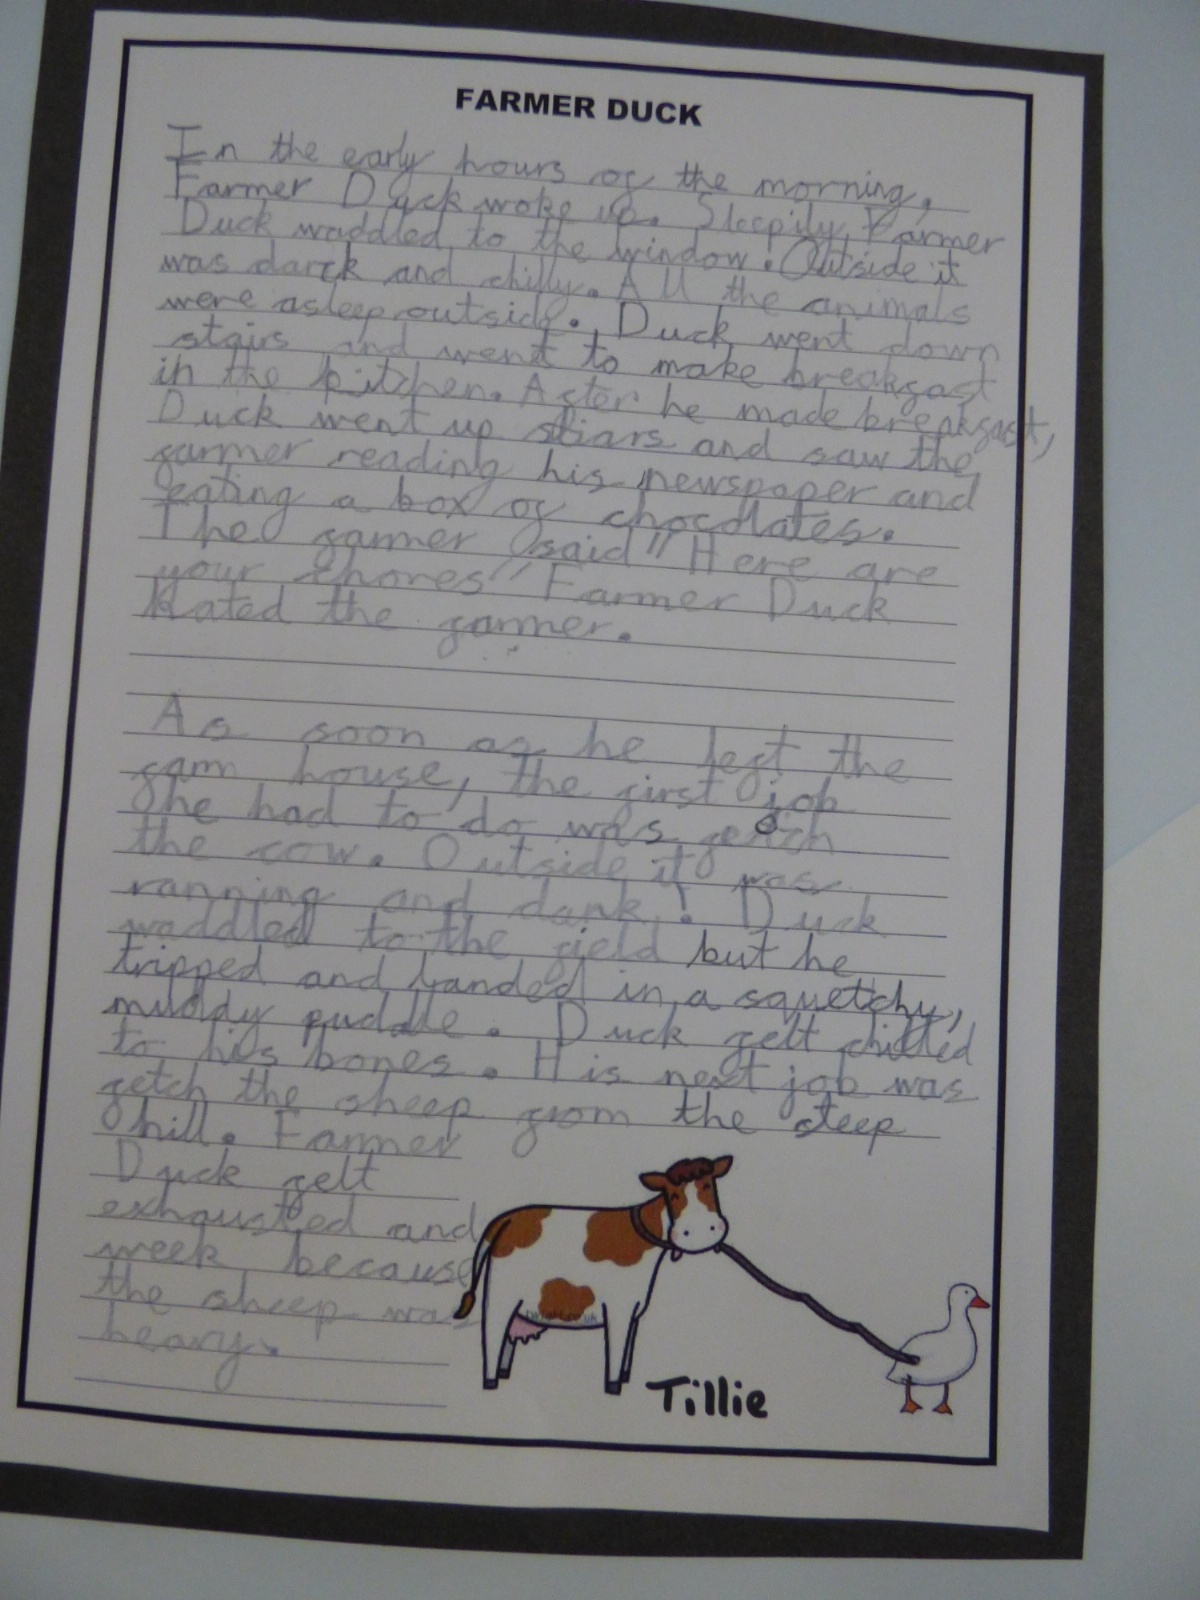 FARMER DUCK
In the early hours of the morning,
Farmer Duck woke up. Sleepily, Farmer
Duck waddled to the window. Outside it
was darck and chilly. All the animals
were asleep outside. Duck went down
stairs and went to make breakfast
in the kitchen. After he made breakfast,
Duck went up stiars and saw the
farmer reading his newspaper and
eating a box of chocolates.
The farmer said "Here are
your chores" Farmer Duck
Hated the farmer.
As soon as he left the
farm house, the first job
he had to do was fetch
the cow. Outside it was
ranning and dark! Duck
waddled to the field but he
tripped and landed in a squelchy,
muddy puddle. Duck felt chilled
to his bones. His next job was
fetch the sheep from the steep
hill. Farmer
Duck felt
exhausted and
week because
the sheep was
heavy.
Tillie